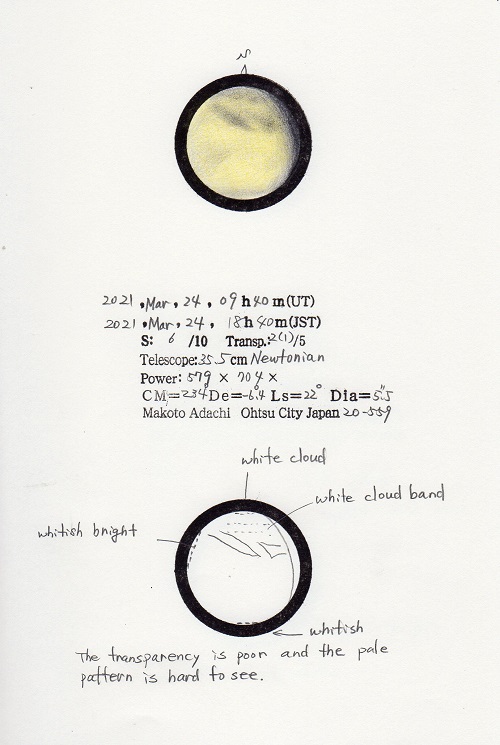 N
2021, Mar, 24, 09h40m(UT)
2021, Mar, 24, 18h40m(JST)
S: 6 /10 Transp.:2(1)/5
Telescope:35.5cm Newtonian
Power: 579 × 704 ×
CM=234° De=-6.°4 Ls=22° Dia=5."5
Makoto Adachi Ohtsu City Japan 20-559
white cloud
white cloud band
whitish bright
whitish
The transparency is poor and the pale
pattern is hard to see.